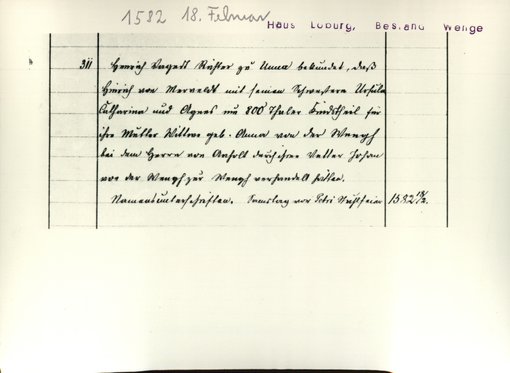 1582 18. Februar
Haus Loburg, Bestand Wenge
311 Henrich Vagedt Richter zu Unna bekundet, daß
Hinrich von Merveldt mit seinen Schwestern Ursula
Catharina und Agnes nu 800 Thaler Kindstheil für
ihre Mutter Wittwe geb. Anna von der Wengh
bei dem Herrn von Anholt durch ihren Vetter Johan
von der Wengh zur Wengh verhandelt hätten.
Namensunterschriften. Samstag vor Petri Stuhlfeier 1582 18/2.